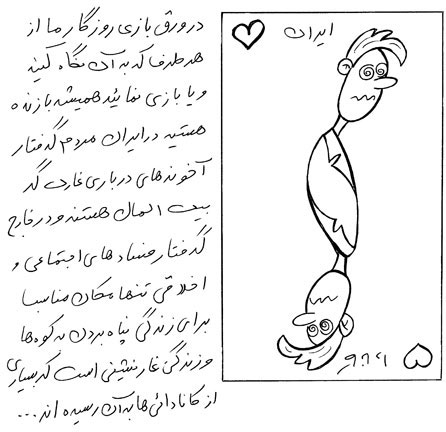 در ورق بازی روزگار ما از
هر طرف که به آن نگاه کنید
و یا بازی نمایید همیشه بازنده
هستید در ایران مردم گرفتار
آخوندهای درباری غارت گر
بیت المال هستند و در خارج
گرفتار فسادهای اجتماعی و
اخلاقی تنها مکان مناسب
برای زندگی پناه بردن به کوه‌ها
و زندگی غار نشینی است که بسیاری
از کانادائی‌ها به آن رسیده اند...
ایران